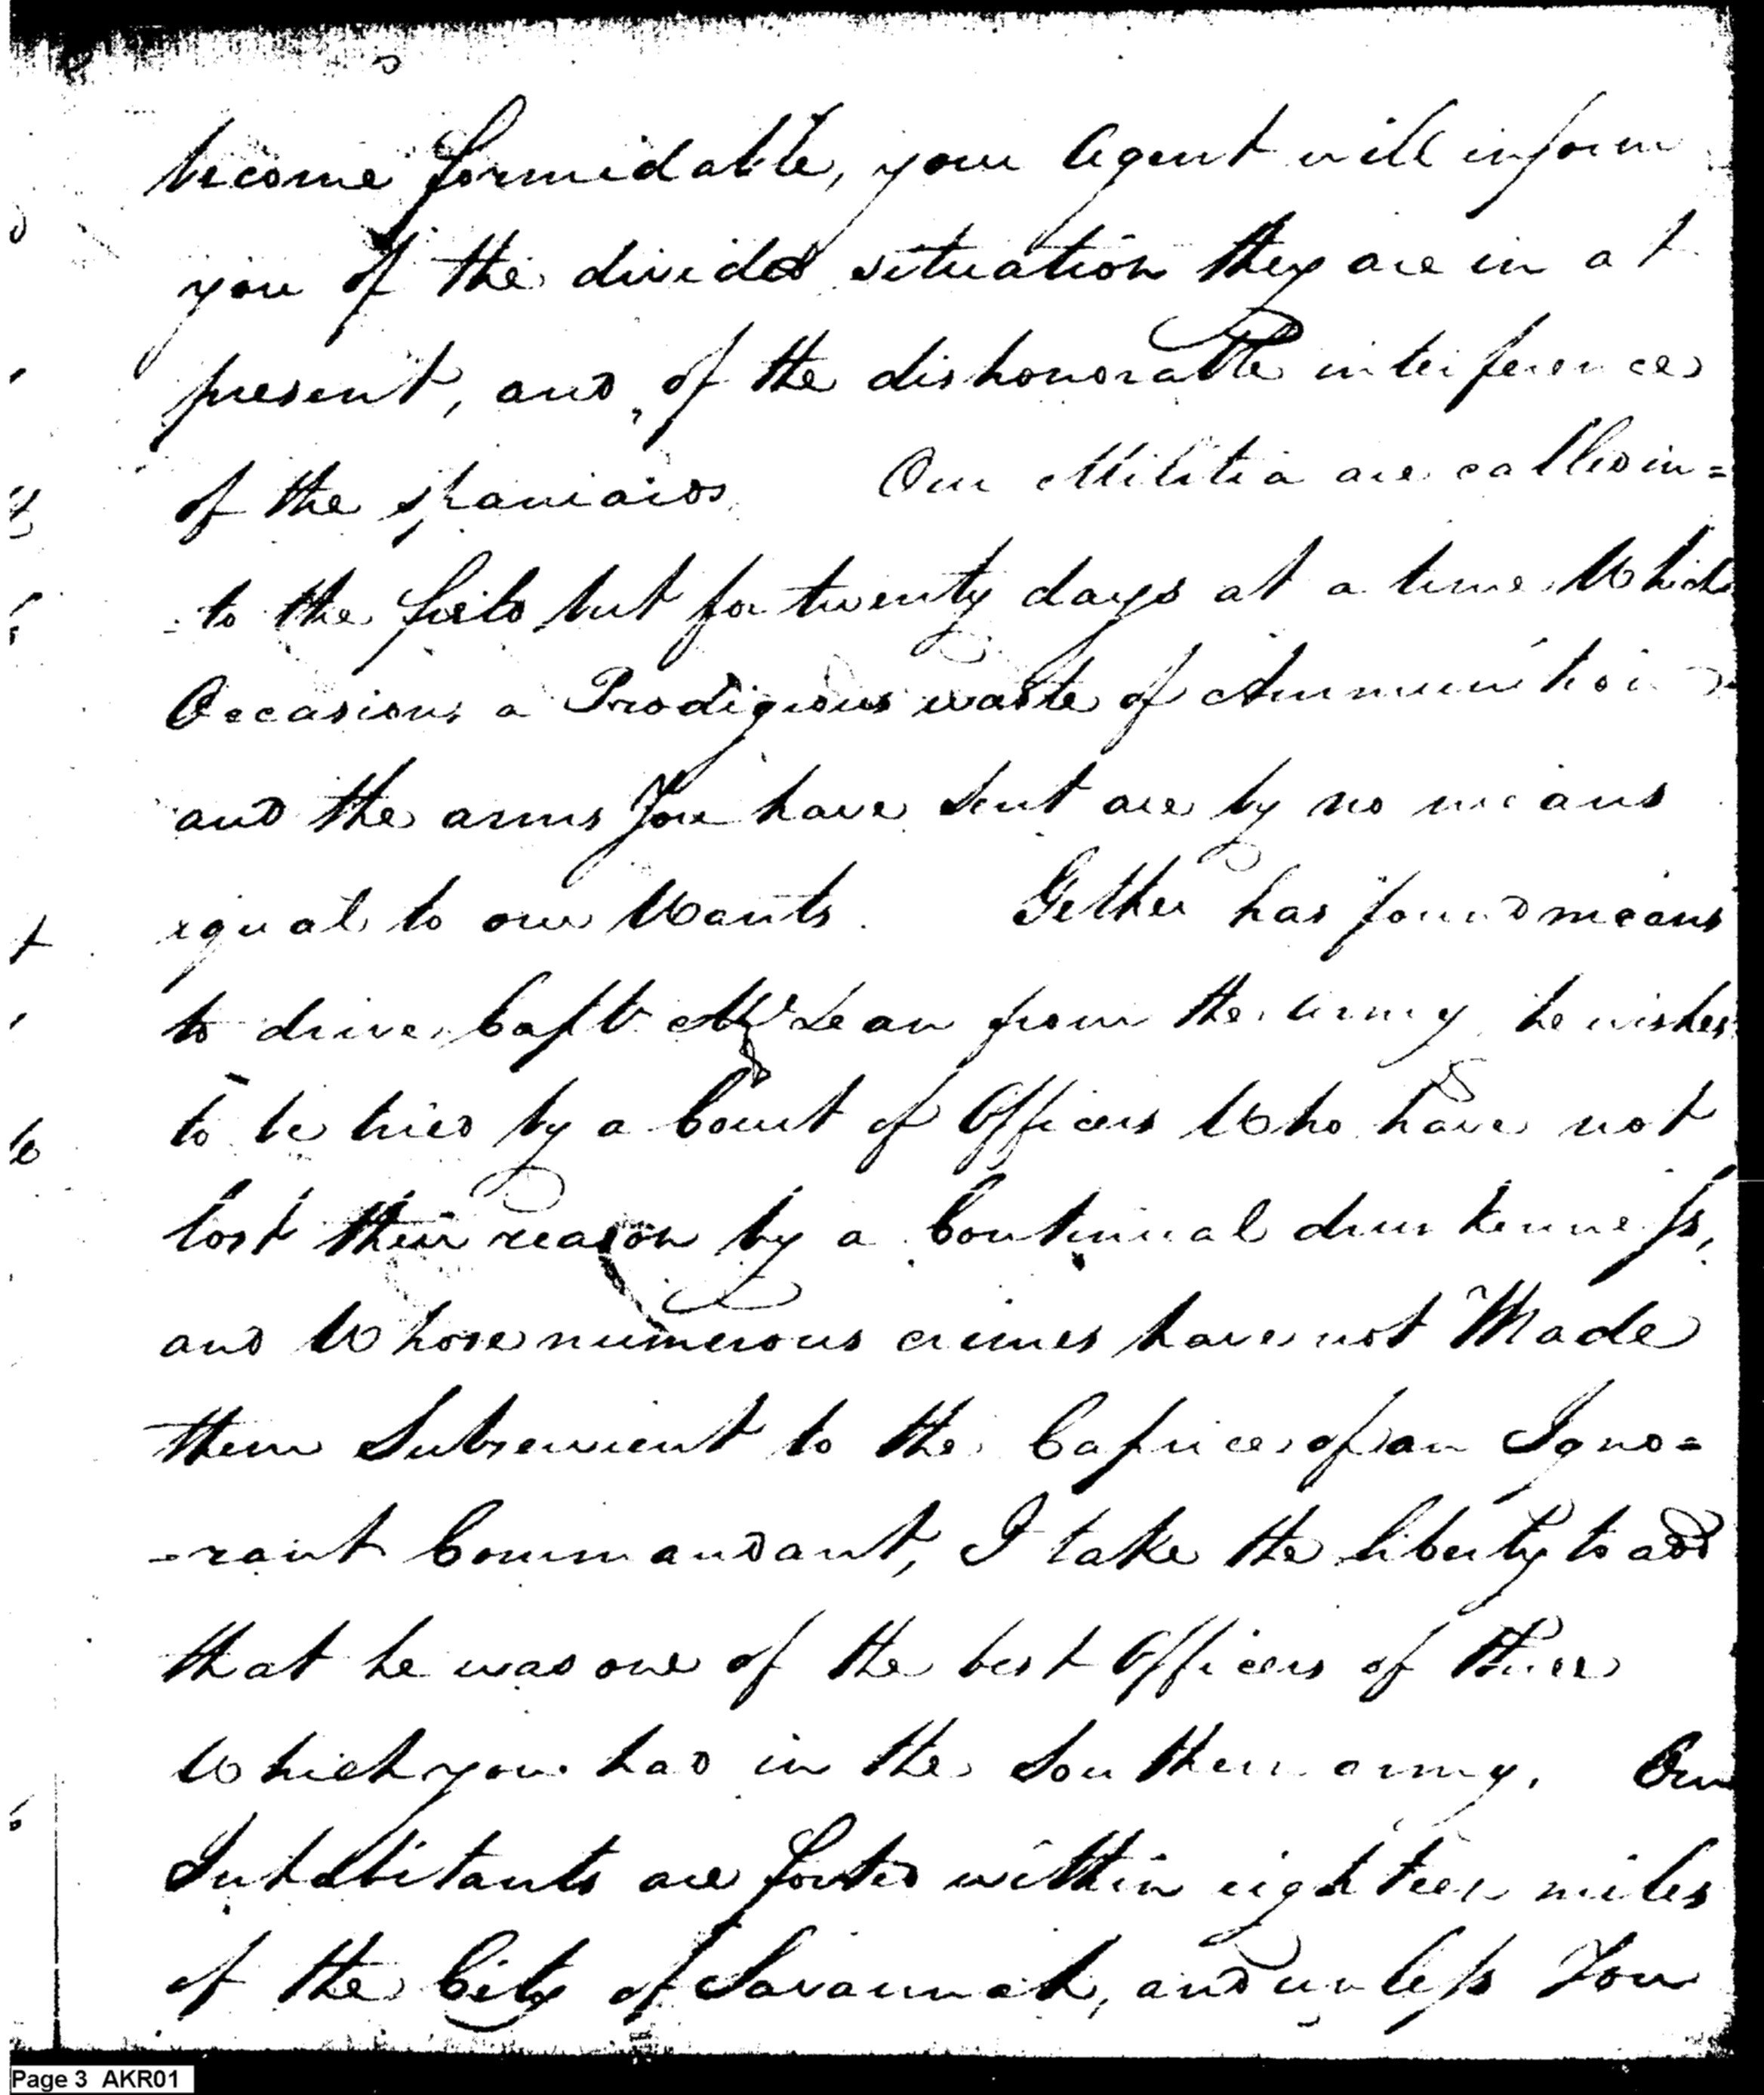 become formidable, your Agent will inform
you of the divided situation they are in at
present, and of the dishonorable interference
of the spaniards. Our Militia are called in=
-to the field but for twenty days at a time Which
Occasions a Prodigious waste of Ammunition
and the arms You have sent are by no means
equal to our Wants. Gether has found means
to drive Capt. McLean from the army he wishes
to be tried by a Court of Officers Who have not
lost their reason by a Continual drunkenness,
and Whose numerous crimes have not Made
them Subservient to the Caprice of an Igno=
-rant Commandant, I take the liberty to add
that he was one of the best Officers of
Which you had in the Southern army. Our
Inhabitants are forted within eighteen miles
of the City of Savannah, and unless You
Page 3 AKR01